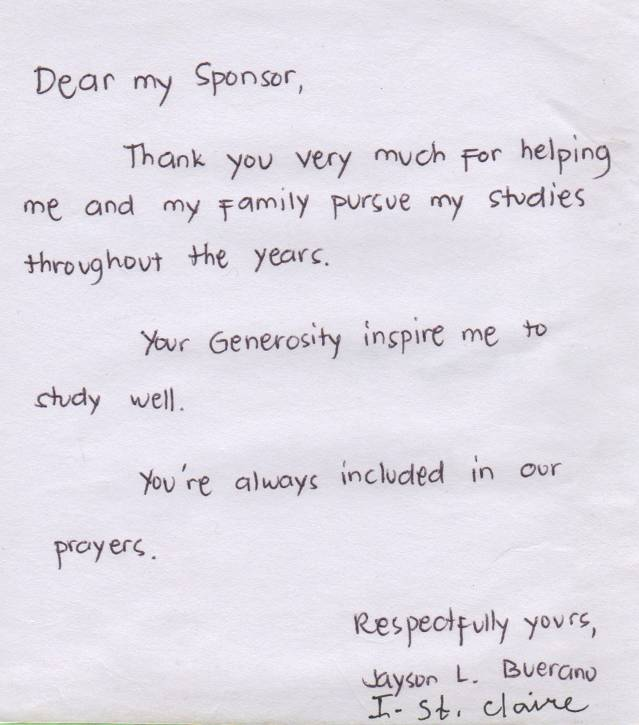 Dear my Sponsor,
Thank you very much For helping
me and my Family pursue my studies
throughout the years.
Your Generosity inspire me to
study well.
You're always included in our
prayers.
Respectfully yours,
Jayson L. Buerano
I- St. Claire